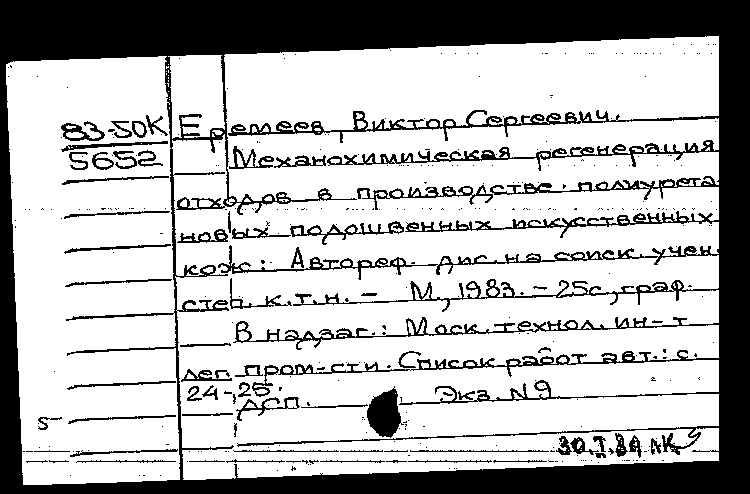 83-50К Еремеев, Виктор Сергеевич.
5652 Механохимическая регенерация
отходов в производстве полиурета
новых подошвенных искусственных
кож: Автореф. дис. на соиск. учен.
степ. к.т.н. - М., 1983. - 25с., граф.
В надзаг.: Моск. технол. ин-т
лег. пром-сти. Список работ авт.: с.
24-25.
ДСП. Экз. N9
5-
30.I.84